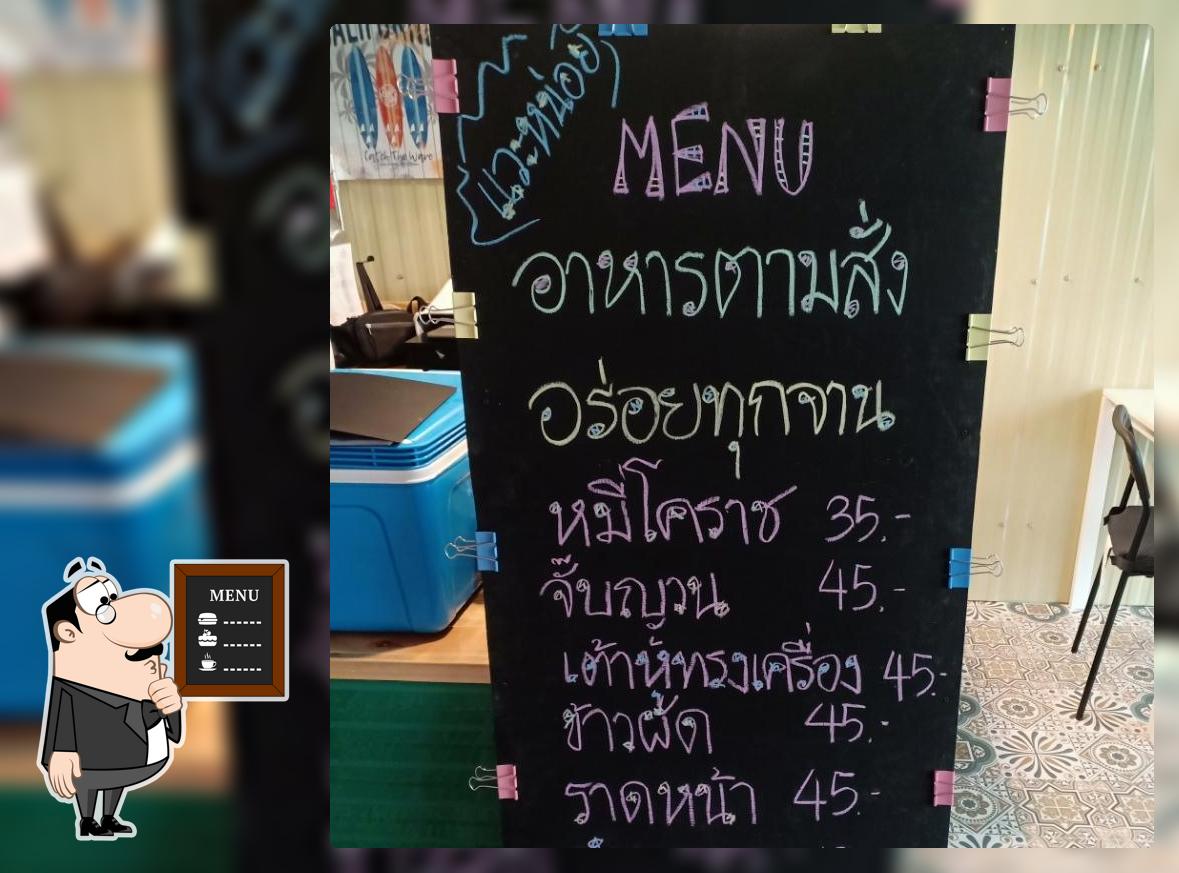 แวะหน่อย
MENU
อาหารตามสั่ง
อร่อยทุกจาน
หมี่โคราช 35.-
จั๊บญวน 45.-
เต้าหู้ทรงเครื่อง 45.-
ข้าวผัด 45.-
ราดหน้า 45.-
Catch The Wave
MENU